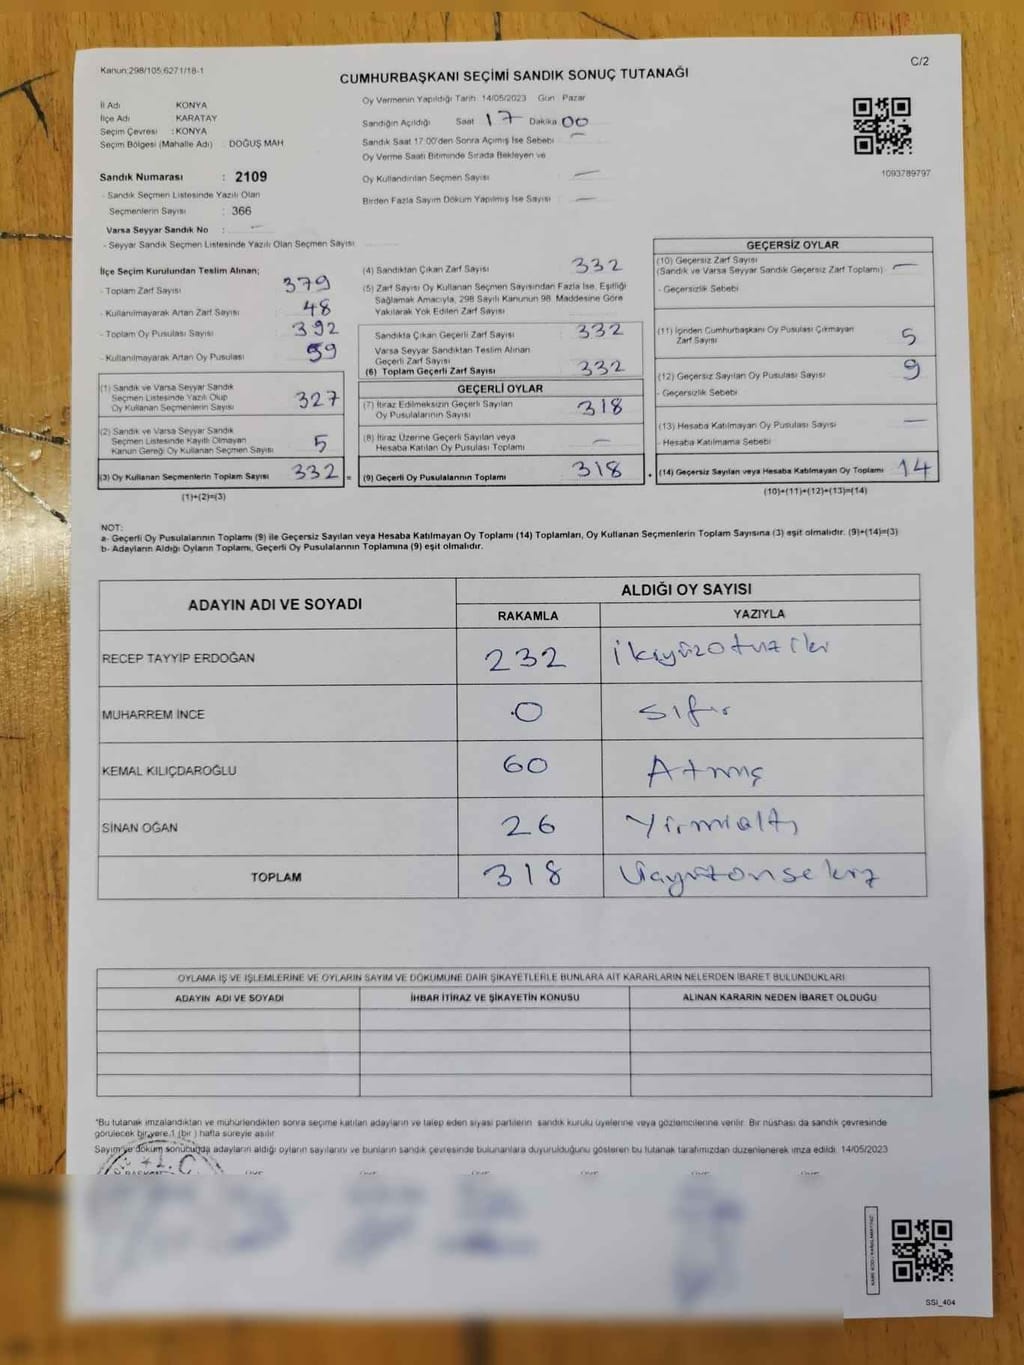 Kanun:298/105;6271/18-1
C/2
CUMHURBAŞKANI SEÇİMİ SANDIK SONUÇ TUTANAĞI
İl Adı KONYA
İlçe Adı KARATAY
Seçim Çevresi : KONYA
Seçim Bölgesi (Mahalle Adı) DOĞUŞ MAH
Sandık Numarası : 2109
- Sandık Seçmen Listesinde Yazılı Olan
Seçmenlerin Sayısı : 366
Varsa Seyyar Sandık No : -
- Seyyar Sandık Seçmen Listesinde Yazılı Olan Seçmen Sayısı
Oy Vermenin Yapıldığı Tarih: 14/05/2023 Gün Pazar
Sandığın Açıldığı Saat 17 Dakika 00
Sandık Saat 17:00'den Sonra Açılmış İse Sebebi -
Oy Verme Saati Bitiminde Sırada Bekleyen ve
Oy Kullandırılan Seçmen Sayısı -
Birden Fazla Sayım Döküm Yapılmış İse Sayısı -
1093789797
İlçe Seçim Kurulundan Teslim Alınan;
- Toplam Zarf Sayısı 379
- Kullanılmayarak Artan Zarf Sayısı 48
- Toplam Oy Pusulası Sayısı 392
- Kullanılmayarak Artan Oy Pusulası 59
(1) Sandık ve Varsa Seyyar Sandık
Seçmen Listesinde Yazılı Olup
Oy Kullanan Seçmenlerin Sayısı 327
(2) Sandık ve Varsa Seyyar Sandık
Seçmen Listesinde Kayıtlı Olmayan
Kanun Gereği Oy Kullanan Seçmen Sayısı 5
(3) Oy Kullanan Seçmenlerin Toplam Sayısı 332 =
(1)+(2)=(3)
(4) Sandıktan Çıkan Zarf Sayısı 332
(5) Zarf Sayısı Oy Kullanan Seçmen Sayısından Fazla İse, Eşitliği
Sağlamak Amacıyla, 298 Sayılı Kanunun 98. Maddesine Göre
Yakılarak Yok Edilen Zarf Sayısı
Sandıkta Çıkan Geçerli Zarf Sayısı 332
Varsa Seyyar Sandıktan Teslim Alınan
Geçerli Zarf Sayısı
(6) Toplam Geçerli Zarf Sayısı 332
GEÇERLİ OYLAR
(7) İtiraz Edilmeksizin Geçerli Sayılan
Oy Pusulalarının Sayısı 318
(8) İtiraz Üzerine Geçerli Sayılan veya
Hesaba Katılan Oy Pusulası Toplamı -
(9) Geçerli Oy Pusulalarının Toplamı 318 +
GEÇERSİZ OYLAR
(10) Geçersiz Zarf Sayısı
(Sandık ve Varsa Seyyar Sandık Geçersiz Zarf Toplamı) -
- Geçersizlik Sebebi
(11) İçinden Cumhurbaşkanı Oy Pusulası Çıkmayan
Zarf Sayısı 5
(12) Geçersiz Sayılan Oy Pusulası Sayısı 9
- Geçersizlik Sebebi
(13) Hesaba Katılmayan Oy Pusulası Sayısı -
- Hesaba Katılmama Sebebi
(14) Geçersiz Sayılan veya Hesaba Katılmayan Oy Toplamı 14
(10)+(11)+(12)+(13)=(14)
NOT:
a- Geçerli Oy Pusulalarının Toplamı (9) ile Geçersiz Sayılan veya Hesaba Katılmayan Oy Toplamı (14) Toplamları, Oy Kullanan Seçmenlerin Toplam Sayısına (3) eşit olmalıdır. (9)+(14)=(3)
b- Adayların Aldığı Oyların Toplamı, Geçerli Oy Pusulalarının Toplamına (9) eşit olmalıdır.
ADAYIN ADI VE SOYADI ALDIĞI OY SAYISI
RAKAMLA YAZIYLA
RECEP TAYYİP ERDOĞAN 232 ikiyüzotuziki
MUHARREM İNCE 0 Sıfır
KEMAL KILIÇDAROĞLU 60 Atmış
SİNAN OĞAN 26 Yirmialtı
TOPLAM 318 Üçyüzonsekiz
OYLAMA İŞ VE İŞLEMLERİNE VE OYLARIN SAYIM VE DÖKÜMÜNE DAİR ŞİKAYETLERLE BUNLARA AİT KARARLARIN NELERDEN İBARET BULUNDUKLARI
ADAYIN ADI VE SOYADI İHBAR İTİRAZ VE ŞİKAYETİN KONUSU ALINAN KARARIN NEDEN İBARET OLDUĞU
*Bu tutanak imzalandıktan ve mühürlendikten sonra seçime katılan adayların ve talep eden siyasi partilerin sandık kurulu üyelerine veya gözlemcilerine verilir. Bir nüshası da sandık çevresinde
görülecek bir yere 1 (bir ) hafta süreyle asılır
Sayım ve döküm sonucunda adayların aldığı oyların sayılarını ve bunların sandık çevresinde bulunanlara duyurulduğunu gösteren bu tutanak tarafımızdan düzenlenerek imza edildi. 14/05/2023
SSI_404